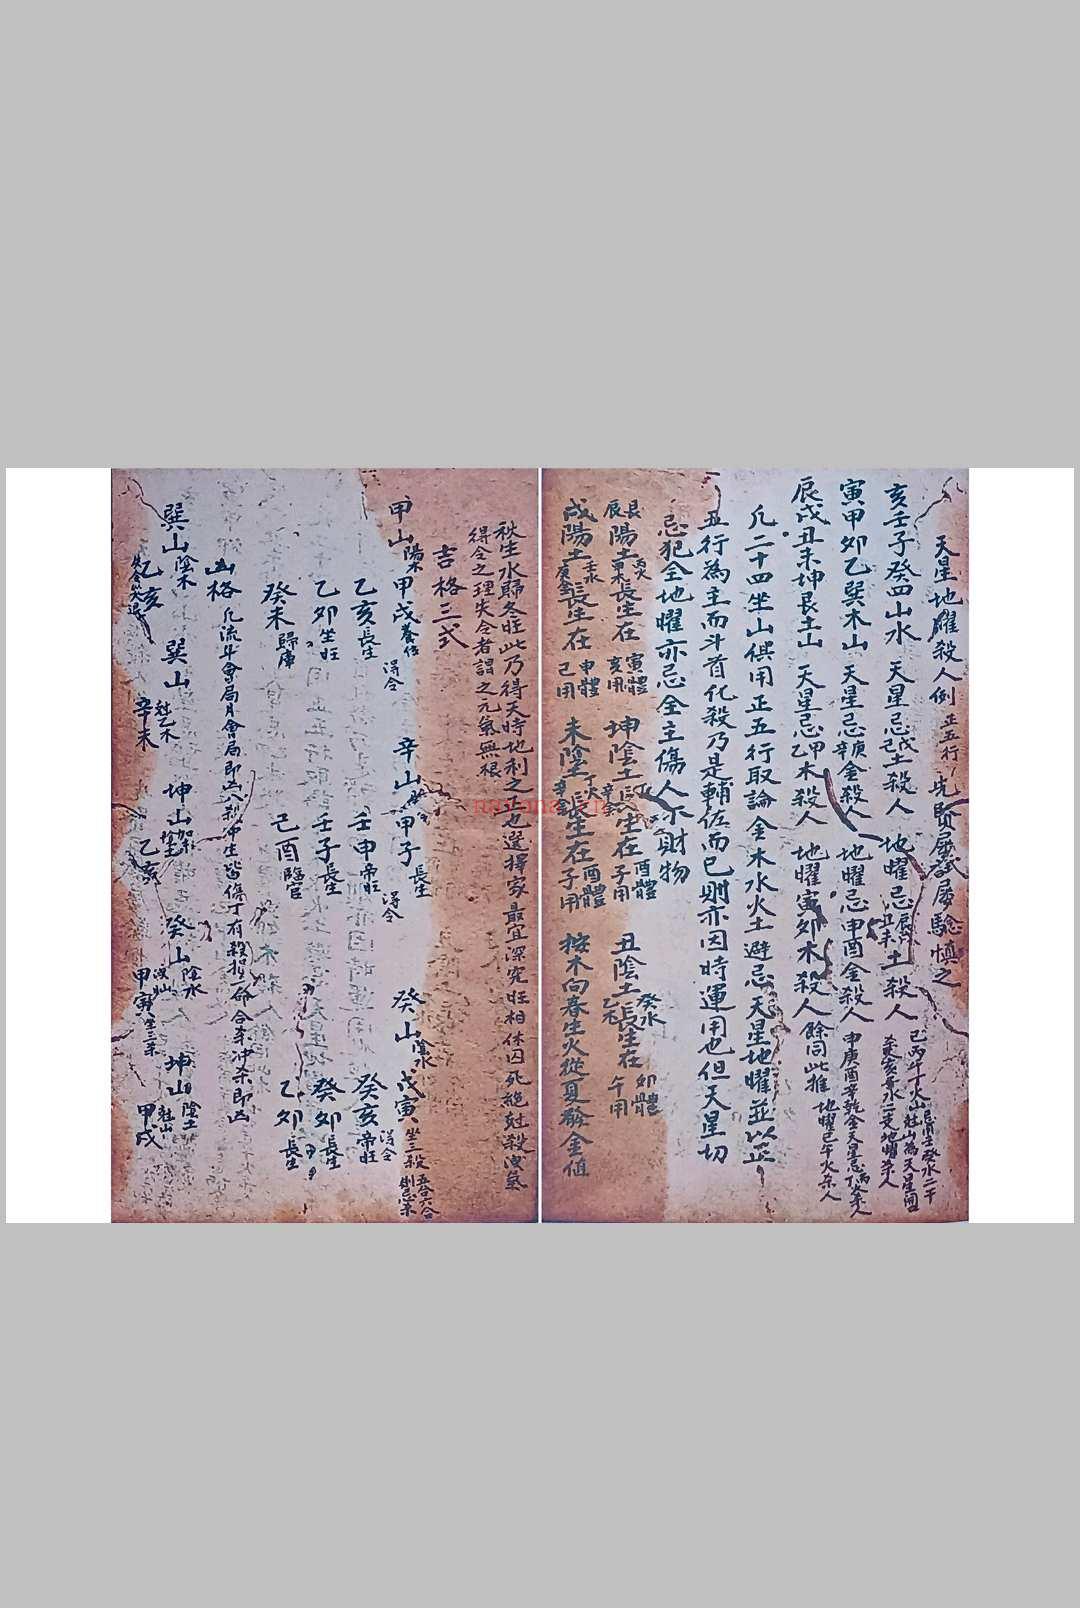 天星地曜殺人例 正五行 先賢屢試屢驗慎之
亥壬子癸四山水 天星忌戊己土殺人 地曜忌辰戌丑未土殺人
寅甲卯乙巽木山 天星忌庚辛金殺人 地曜忌申酉金殺人
辰戌丑未坤艮土山 天星忌甲乙木殺人 地曜寅卯木殺人 餘同此推
凡二十四坐山俱用正五行取論金木水火土避忌天星地曜並以正
五行為主而斗首化殺乃是輔佐而已則亦因時運用也但天星切
忌犯全地曜亦忌全主傷人不財物
艮辰陽土 丙火 長生在 寅體亥用 坤陰土 長生在 酉體子用 丑陰土 癸水乙木 長生在 卯體午用
戌陽土 壬水庚金 長生在 申體己用 未陰 丁火 長生在 酉體子用 按木向春生火從夏發金值
秋生水歸冬旺此乃得天時地利之正也選擇家最宜深究旺相休囚死絕尅殺洩氣
得令之理失令者謂之元氣無根
吉格三式
甲山 陽木 甲戌 養位 得令 辛山 甲子 長生 得令 癸山 陰水 戊寅 坐三殺
乙亥 長生 壬申 帝旺 癸亥 帝旺 得令
乙卯 坐旺 壬子 長生 癸卯 長生
癸未 歸庫 己酉 臨官 乙卯 長生
凶格 凡流斗會局月會局即凶八刹冲生皆傷丁有殺損命合殺冲殺即凶
巽山 陰木 巽山 尅乙木 坤山 癸山 陰水 坤山 陰土
乙亥 辛未 乙亥 甲寅 坐三殺 甲戌